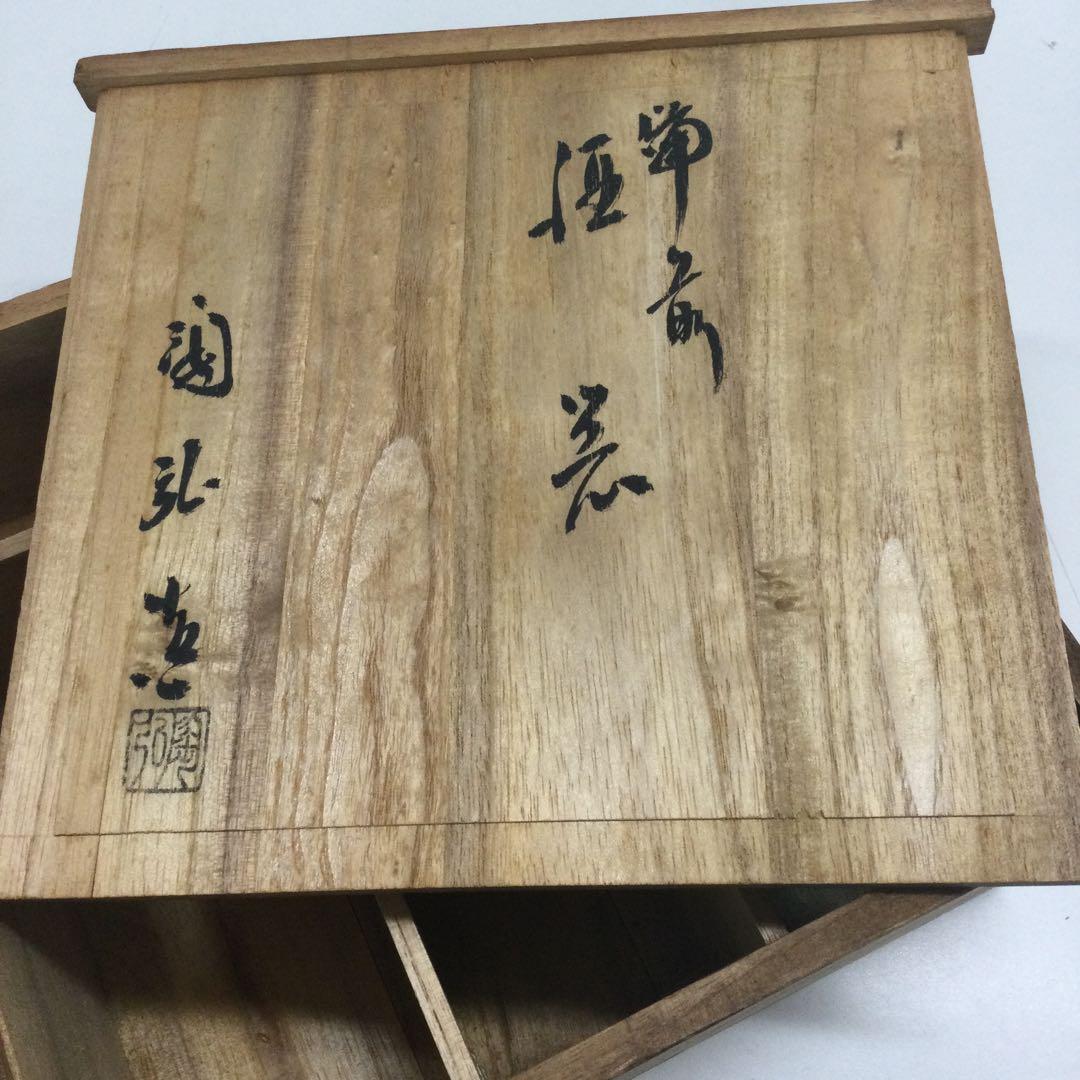 備前
酒器
陶弘造
陶弘